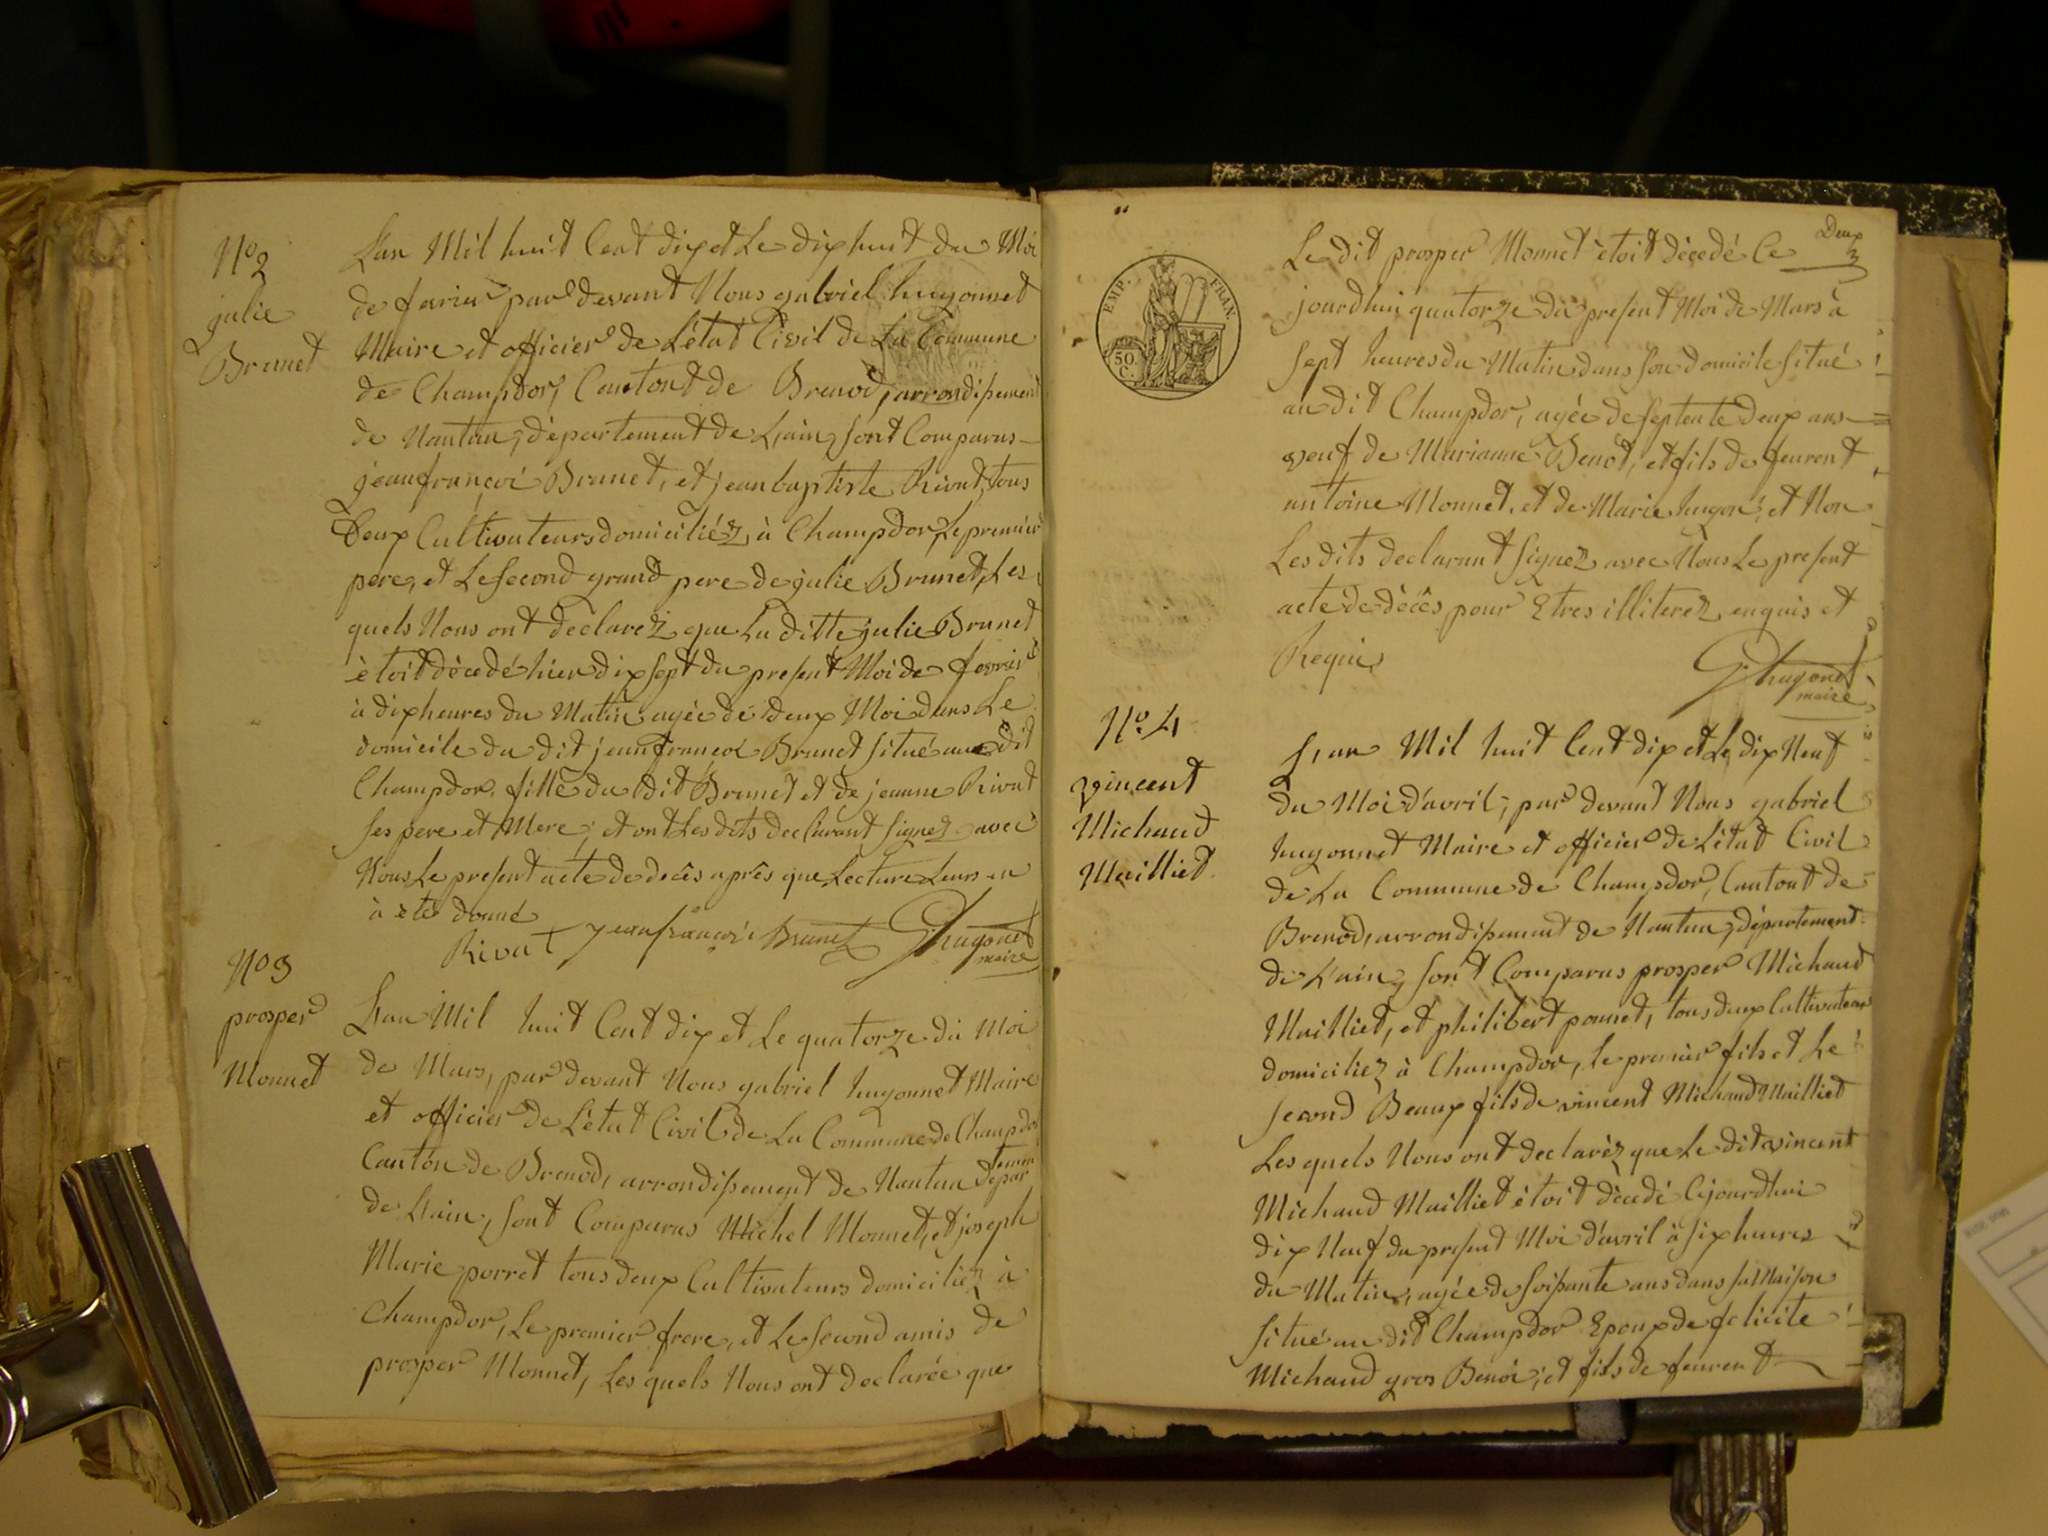 No 2
julie
Brunet
L'an Mil huit Cent dix et Le dix huit du Moi
de fevrier par devant Nous gabriel hugonnet
Maire et officier de L'état Civil de La Commune
de Champdor, Cantont de Brenod, arrondissement
de Nantua, département de L'ain, sont Comparus
jean françoi Brunet, et jean baptiste Rivat, tous
Deux Cultivateurs domiciliéz à Champdor, Le premier
pere, et Le second grand pere de julie Brunet, Les
quels Nous ont declarez que La ditte julie Brunet
ètoit dècedé hier dix sept du present Moi de fevrier
à dix heures du Matin agée de deux Moi dans Le
domicile du dit jean françoi Brunet situé au dit
Champdor, fille du dit Brunet et de jeanne Rivat
ses pere et Mere, et ont Les dits declarant signez avec
Nous Le present acte de decês après que Lecture Leurs en
à été donné
Rivat jean françoi Brunet G. hugonet
maire
No 3
prosper
Monnet
L'an Mil huit Cent dix et Le quatorze du Moi
de Mars, par devant Nous gabriel hugonnet Maire
et officier de L'état Civil de La Commune de Champdor
Cantôn de Brenod, arrondissement de Nantua depar
temen
de L'ain, sont Comparus Michel Monnet, et joseph
Marie porret tous deux Cultivateurs domiciliez à
Champdor, Le premier frere, et Le second amis de
prosper Monnet, Les quels Nous ont declarée que
Deux
2
EMP. FRAN.
50
C.
Le dit prosper Monnet ètoit dècedé Ce
jourdhui quatorze du present Moi de Mars à
sept heures du Matin dans son domicile situé
au dit Champdor, agée de septente deux ans
veuf de Marianne Benoî, et fils de feurent
antoine Monnet, et de Marie hugon, et Non
Les dits declarant signez avec Nous Le present
acte de dècês pour Etres illiterez enquis et
Requis
G. hugonet
maire
No. 4
vincent
Michaud
Mailliet
L'an Mil huit Cent dix et Le dix Neuf
du Moi d'avril, par devant Nous gabriel
hugonnet Maire et officier de L'état Civil
de La Commune de Champdor, Cantont de
Brenod, arrondissement de Nantua, département
de L'ain, sont Comparus prosper Michaud
Mailliet, et philibert ponnet, tous deux Cultivateurs
domiciliez à Champdor, Le premier fils et Le
second Beaux fils de vincent Michaud Mailliet
Les quels Nous ont declaréz que Le dit vincent
Michaud Mailliet ètoit dècedé Cejourdhui
dix Neuf du present Moi d'avril à six heures
du Matin, agée de soissante ans dans sa Maison
situé au dit Champdor Epoux de felicite
Michaud gros Benoi, et fils de feurent